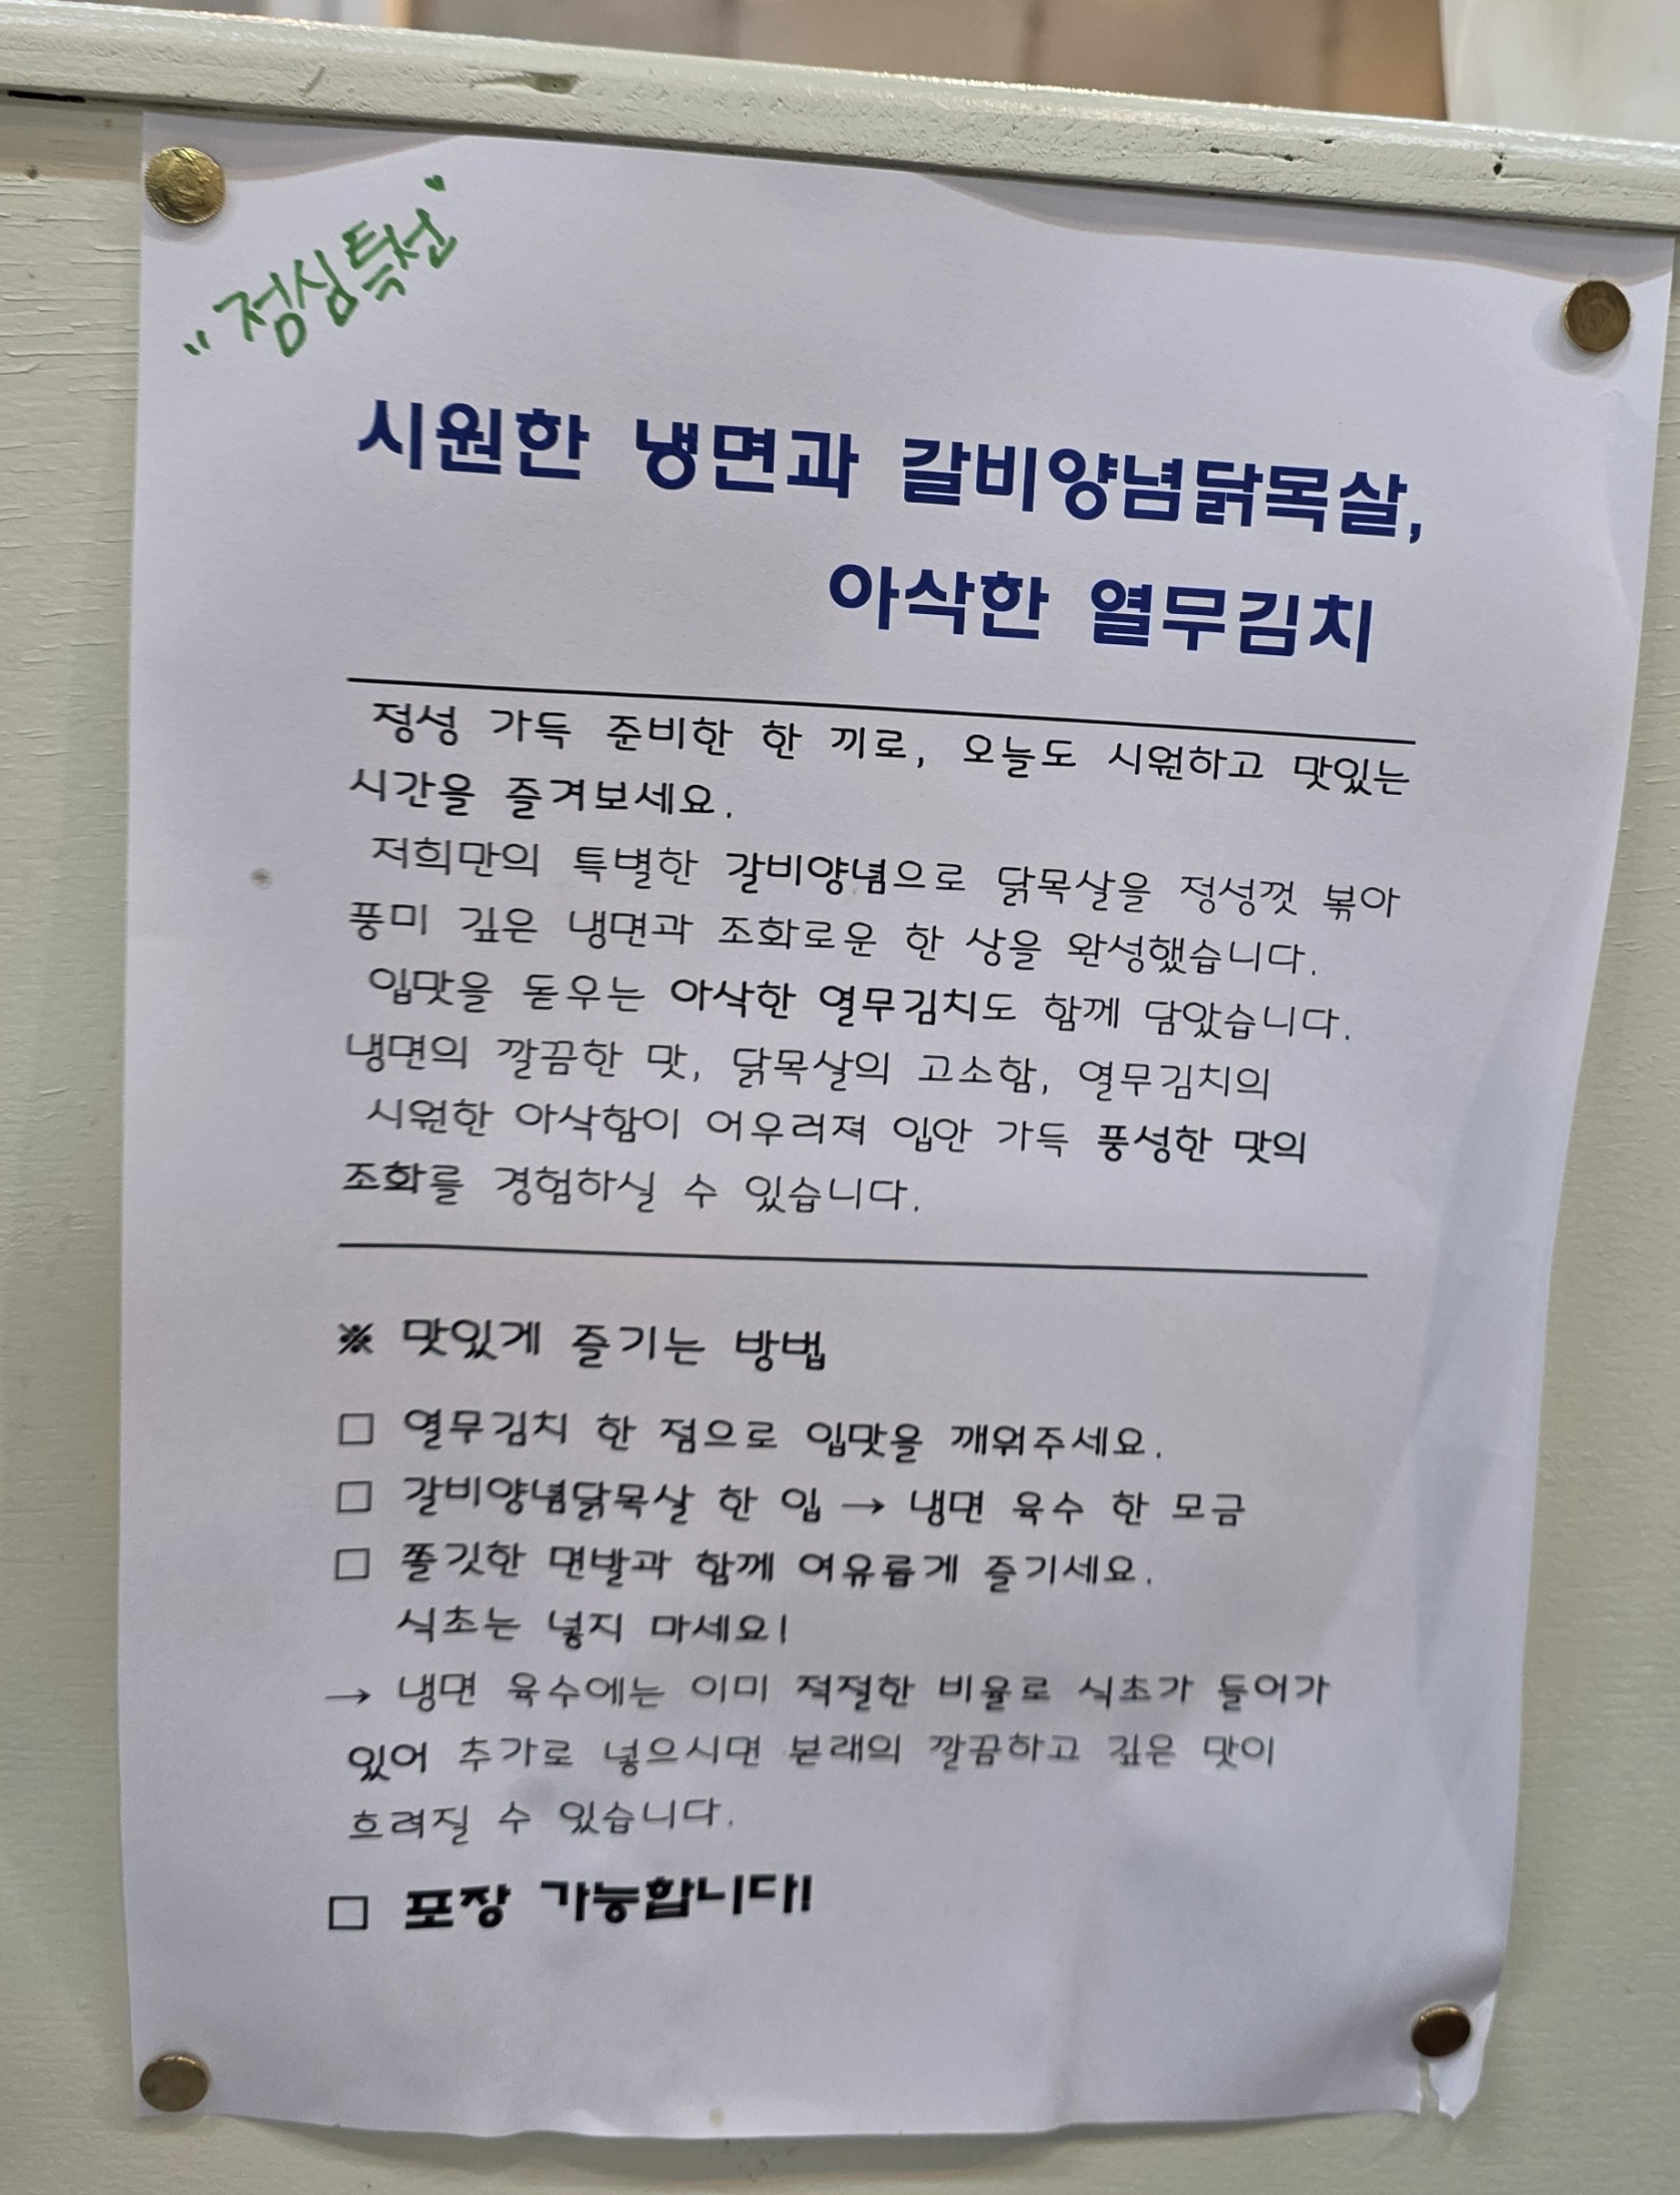 "점심특선"
시원한 냉면과 갈비양념닭목살,
아삭한 열무김치
정성 가득 준비한 한 끼로, 오늘도 시원하고 맛있는
시간을 즐겨보세요.
저희만의 특별한 갈비양념으로 닭목살을 정성껏 볶아
풍미 깊은 냉면과 조화로운 한 상을 완성했습니다.
입맛을 돋우는 아삭한 열무김치도 함께 담았습니다.
냉면의 깔끔한 맛, 닭목살의 고소함, 열무김치의
시원한 아삭함이 어우러져 입안 가득 풍성한 맛의
조화를 경험하실 수 있습니다.
※ 맛있게 즐기는 방법
□ 열무김치 한 점으로 입맛을 깨워주세요.
□ 갈비양념닭목살 한 입 → 냉면 육수 한 모금
□ 쫄깃한 면발과 함께 여유롭게 즐기세요.
식초는 넣지 마세요!
→ 냉면 육수에는 이미 적절한 비율로 식초가 들어가
있어 추가로 넣으시면 본래의 깔끔하고 깊은 맛이
흐려질 수 있습니다.
□ 포장 가능합니다!